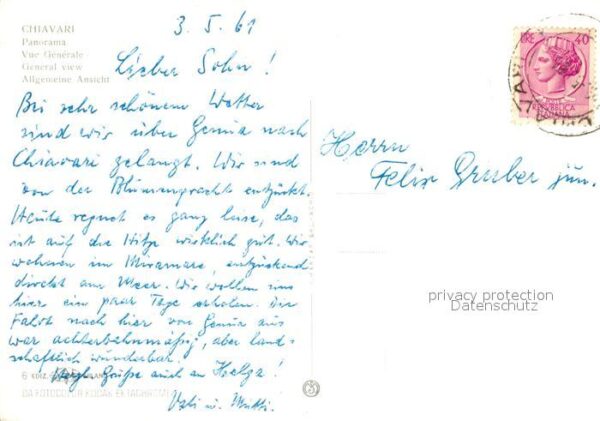 CHIAVARI
Panorama
Vue Générale
General view
Allgemeine Ansicht
3.5.61
Lieber Sohn!
Bei sehr schönem Wetter
sind wir über Genua nach
Chiavari gelangt. Wir sind
von der Blumenpracht entzückt.
Heute regnet es ganz leise, das
ist auf die Hitze wirklich gut. Wir
wohnen im Miramare, entzückend
direkt am Meer. Wir wollen uns
hier ein paar Tage erholen. Die
Fahrt nach hier von Genua aus
war achterbahnmäßig, aber land-
schaftlich wunderbar.
Herzl. Grüße auch an Helga!
Vati u. Mutti.
Herrn
Felix Gruber jun.
LIRE 40
REPUBBLICA
ITALIANA
privacy protection
Datenschutz
6 EDIZ.
DA FOTOCOLOR KODAK EKTACHROME